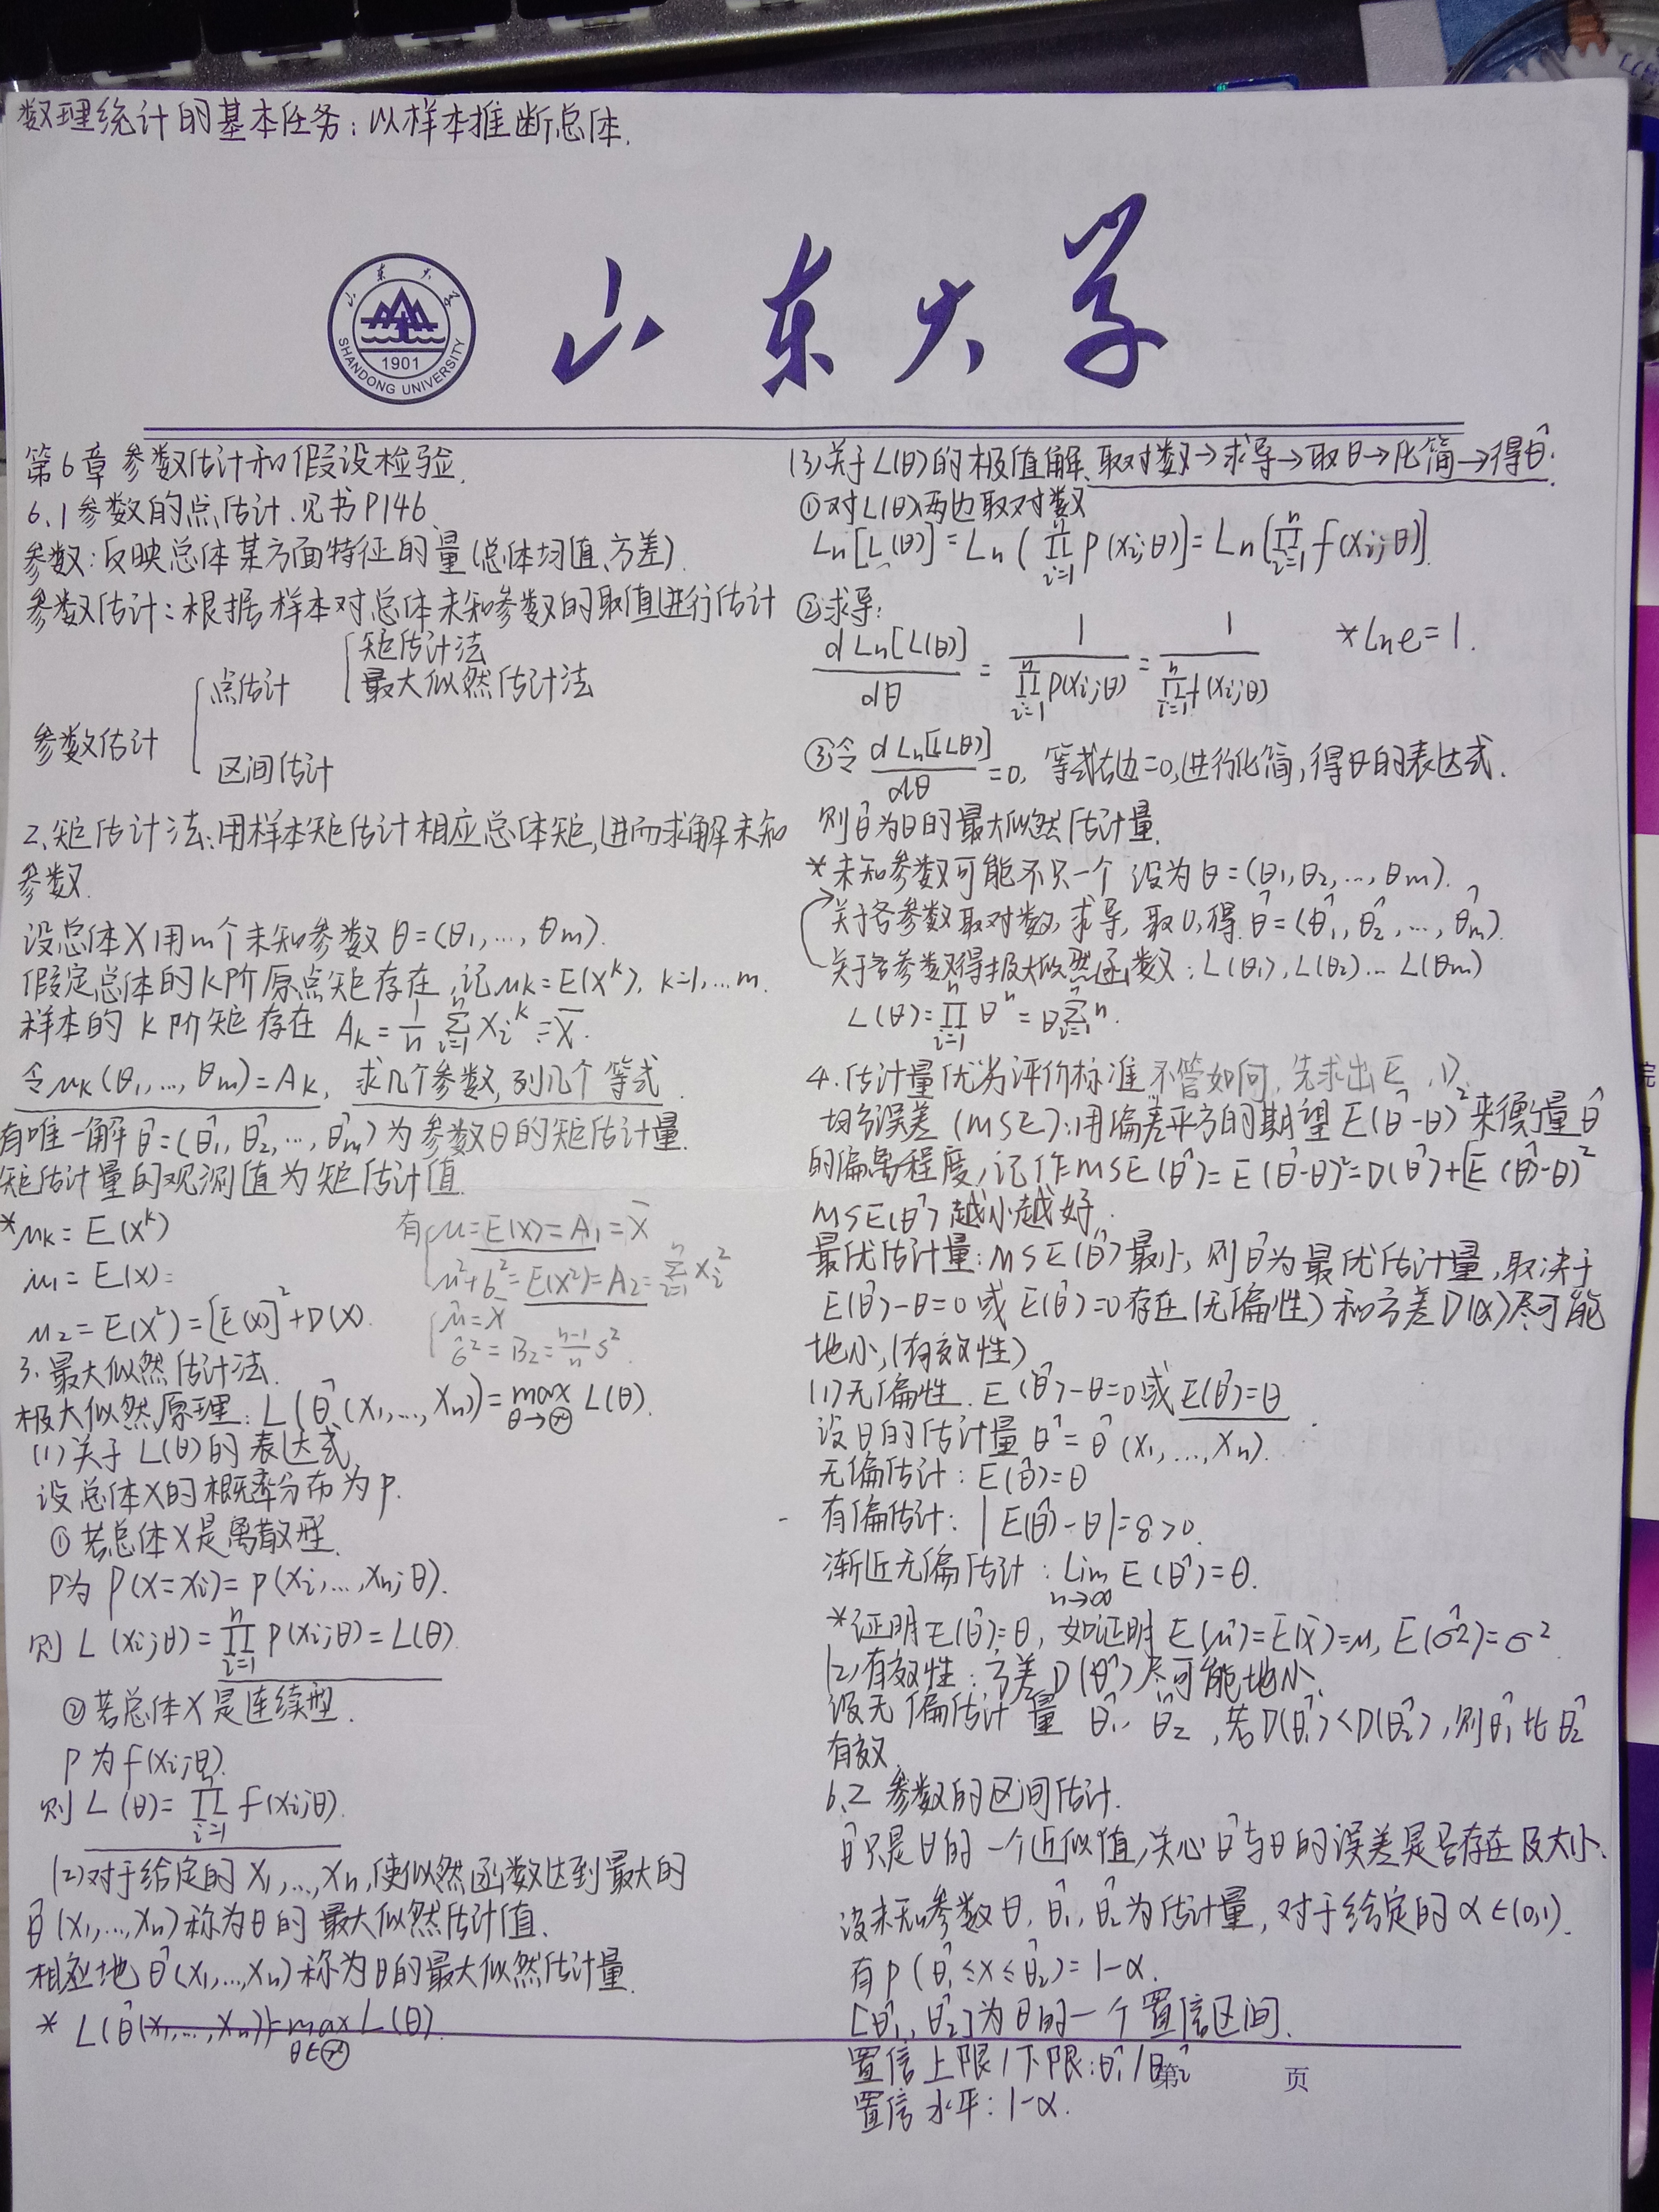 数理统计的基本任务：以样本推断总体.
山东大学
山东大学
SHANDONG UNIVERSITY
1901
第6章 参数估计和假设检验.
6.1 参数的点估计.见书P146.
参数：反映总体某方面特征的量(总体均值、方差).
参数估计：根据样本对总体未知参数的取值进行估计
矩估计法
点估计 最大似然估计法
参数估计
区间估计
2.矩估计法：用样本矩估计相应总体矩,进而求解未知
参数.
设总体X用m个未知参数 θ=(θ1,…,θm).
假定总体的K阶原点矩存在,记μk=E(X^k), k=1,…m.
样本的 K 阶矩存在 Ak=1/n ∑_{i=1}^n Xi^k = X̄.
令μk(θ1,…,θm)=Ak, 求几个参数,列几个等式.
有唯一解 θ̂=(θ̂1,θ̂2,…,θ̂m)为参数θ的矩估计量.
矩估计量的观测值为矩估计值.
*μk=E(X^k)
μ1=E(X)=
μ2=E(X²)=[E(X)]²+D(X).
有 μ=E(X)=A1=X̄
μ²+σ²=E(X²)=A2=∑_{i=1}^n Xi²
μ̂=X̄
σ̂²=B2=(n-1)/n S².
3.最大似然估计法.
极大似然原理：L(θ̂(X1,…,Xn))=max_{θ→Θ} L(θ).
(1)关于L(θ)的表达式
设总体X的概率分布为p.
①若总体X是离散型.
P为 P(X=xi)=p(xi,…,xn;θ).
则 L(xi;θ)=∏_{i=1}^n p(xi;θ)=L(θ).
②若总体X是连续型.
P为 f(xi;θ).
则 L(θ)=∏_{i=1}^n f(xi;θ).
(2)对于给定的 X1,…,Xn,使似然函数达到最大的
θ̂(x1,…,xn)称为θ的最大似然估计值.
相应地 θ̂(X1,…,Xn)称为θ的最大似然估计量.
* L(θ̂(x1,…,xn))=max_{θ∈Θ} L(θ).
(3)关于L(θ)的极值解、取对数→求导→取θ→化简→得θ̂.
①对L(θ)两边取对数
Ln[L(θ)]=Ln(∏_{i=1}^n p(xi;θ)]=Ln[∏_{i=1}^n f(xi;θ)].
②求导：
dLn[L(θ)]/dθ = 1/∏_{i=1}^n p(xi;θ) = 1/∏_{i=1}^n f(xi;θ) *Lne=1.
③令 dLn[L(θ)]/dθ=0, 等式右边=0,进行化简,得θ的表达式.
则θ̂为θ的最大似然估计量.
*未知参数可能不只一个 设为θ=(θ1,θ2,…,θm).
关于各参数取对数,求导,取0,得 θ̂=(θ̂1,θ̂2,…,θ̂m).
关于各参数得极大似然函数：L(θ1),L(θ2)…L(θm)
L(θ)=∏_{i=1}^n θ^n=θ^{∑_{i=1}^n n}.
4.估计量优劣评价标准 不管如何,先求出E,D
均方误差(MSE)：用偏差平方的期望E(θ̂-θ)²来衡量θ̂
的偏离程度,记作MSE(θ̂)=E(θ̂-θ)²=D(θ̂)+[E(θ̂)-θ)²
MSE(θ̂)越小越好.
最优估计量：MSE(θ̂)最小,则θ̂为最优估计量,取决于
E(θ̂)-θ=0或E(θ̂)=0存在(无偏性)和方差D(α)尽可能
地小,(有效性)
(1)无偏性.E(θ̂)-θ=0或E(θ̂)=θ
设θ的估计量θ̂=θ̂(X1,…,Xn).
无偏估计：E(θ̂)=θ
有偏估计：|E(θ̂)-θ|=ε>0.
渐近无偏估计：Lim_{n→∞} E(θ̂)=θ.
*证明E(θ̂)=θ,如证明E(μ̂)=E(X̄)=μ,E(σ̂²)=σ²
(2)有效性：方差D(θ̂)尽可能地小.
设无偏估计量 θ̂1,θ̂2,若D(θ̂1)<D(θ̂2),则θ̂1比θ̂2
有效.
6.2 参数的区间估计.
θ̂只是θ的一个近似值,关心θ̂与θ的误差是否存在及大小.
设未知参数θ,θ̂1,θ̂2为估计量,对于给定的α∈(0,1).
有P(θ̂1≤X≤θ̂2)=1-α.
[θ̂1,θ̂2]为θ的一个置信区间.
置信上限/下限:θ̂1/θ̂2
第 页
置信水平：1-α.
完